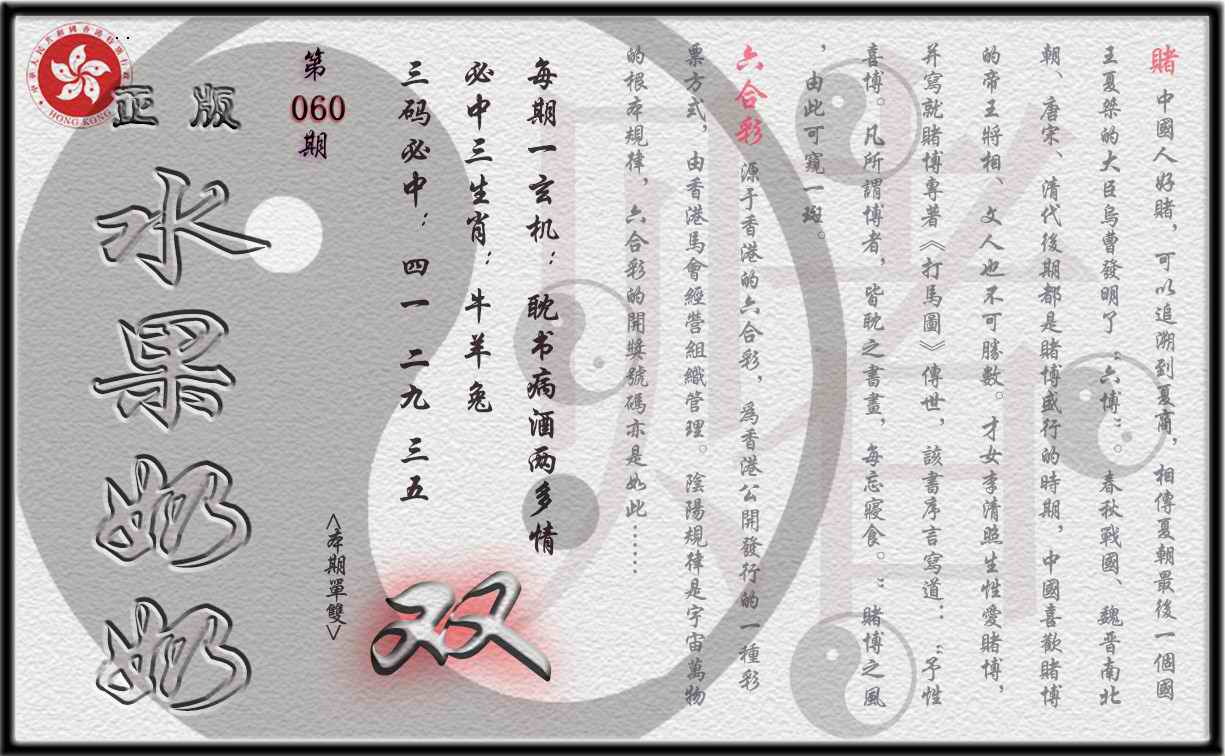 賭 中國人好賭，可以追溯到夏商，相傳夏朝最後一個國
王夏桀的大臣烏曹發明了“六博”。春秋戰國、魏晋南北
朝、唐宋、清代後期都是賭博盛行的時期，中國喜歡賭博
的帝王將相、文人也不可勝數。才女李清照生性愛賭博，
并寫就賭博專著《打馬圖》傳世，該書序言寫道：“予性
喜博。凡所謂博者，皆耽之書畫，每忘寢食。”賭博之風
，由此可窺一斑。
六合彩 源于香港的六合彩，爲香港公開發行的一種彩
票方式，由香港馬會經營組織管理。陰陽規律是宇宙萬物
的根本規律，六合彩的開獎號碼亦是如此……
每期一玄机：耽书病酒两多情
必中三生肖：牛羊兔
三码必中：四一 二九 三五
<本期單雙>
双
第
060
期
正版
水果奶奶
中華人民共和國香港特別行政區
HONG KONG
賭